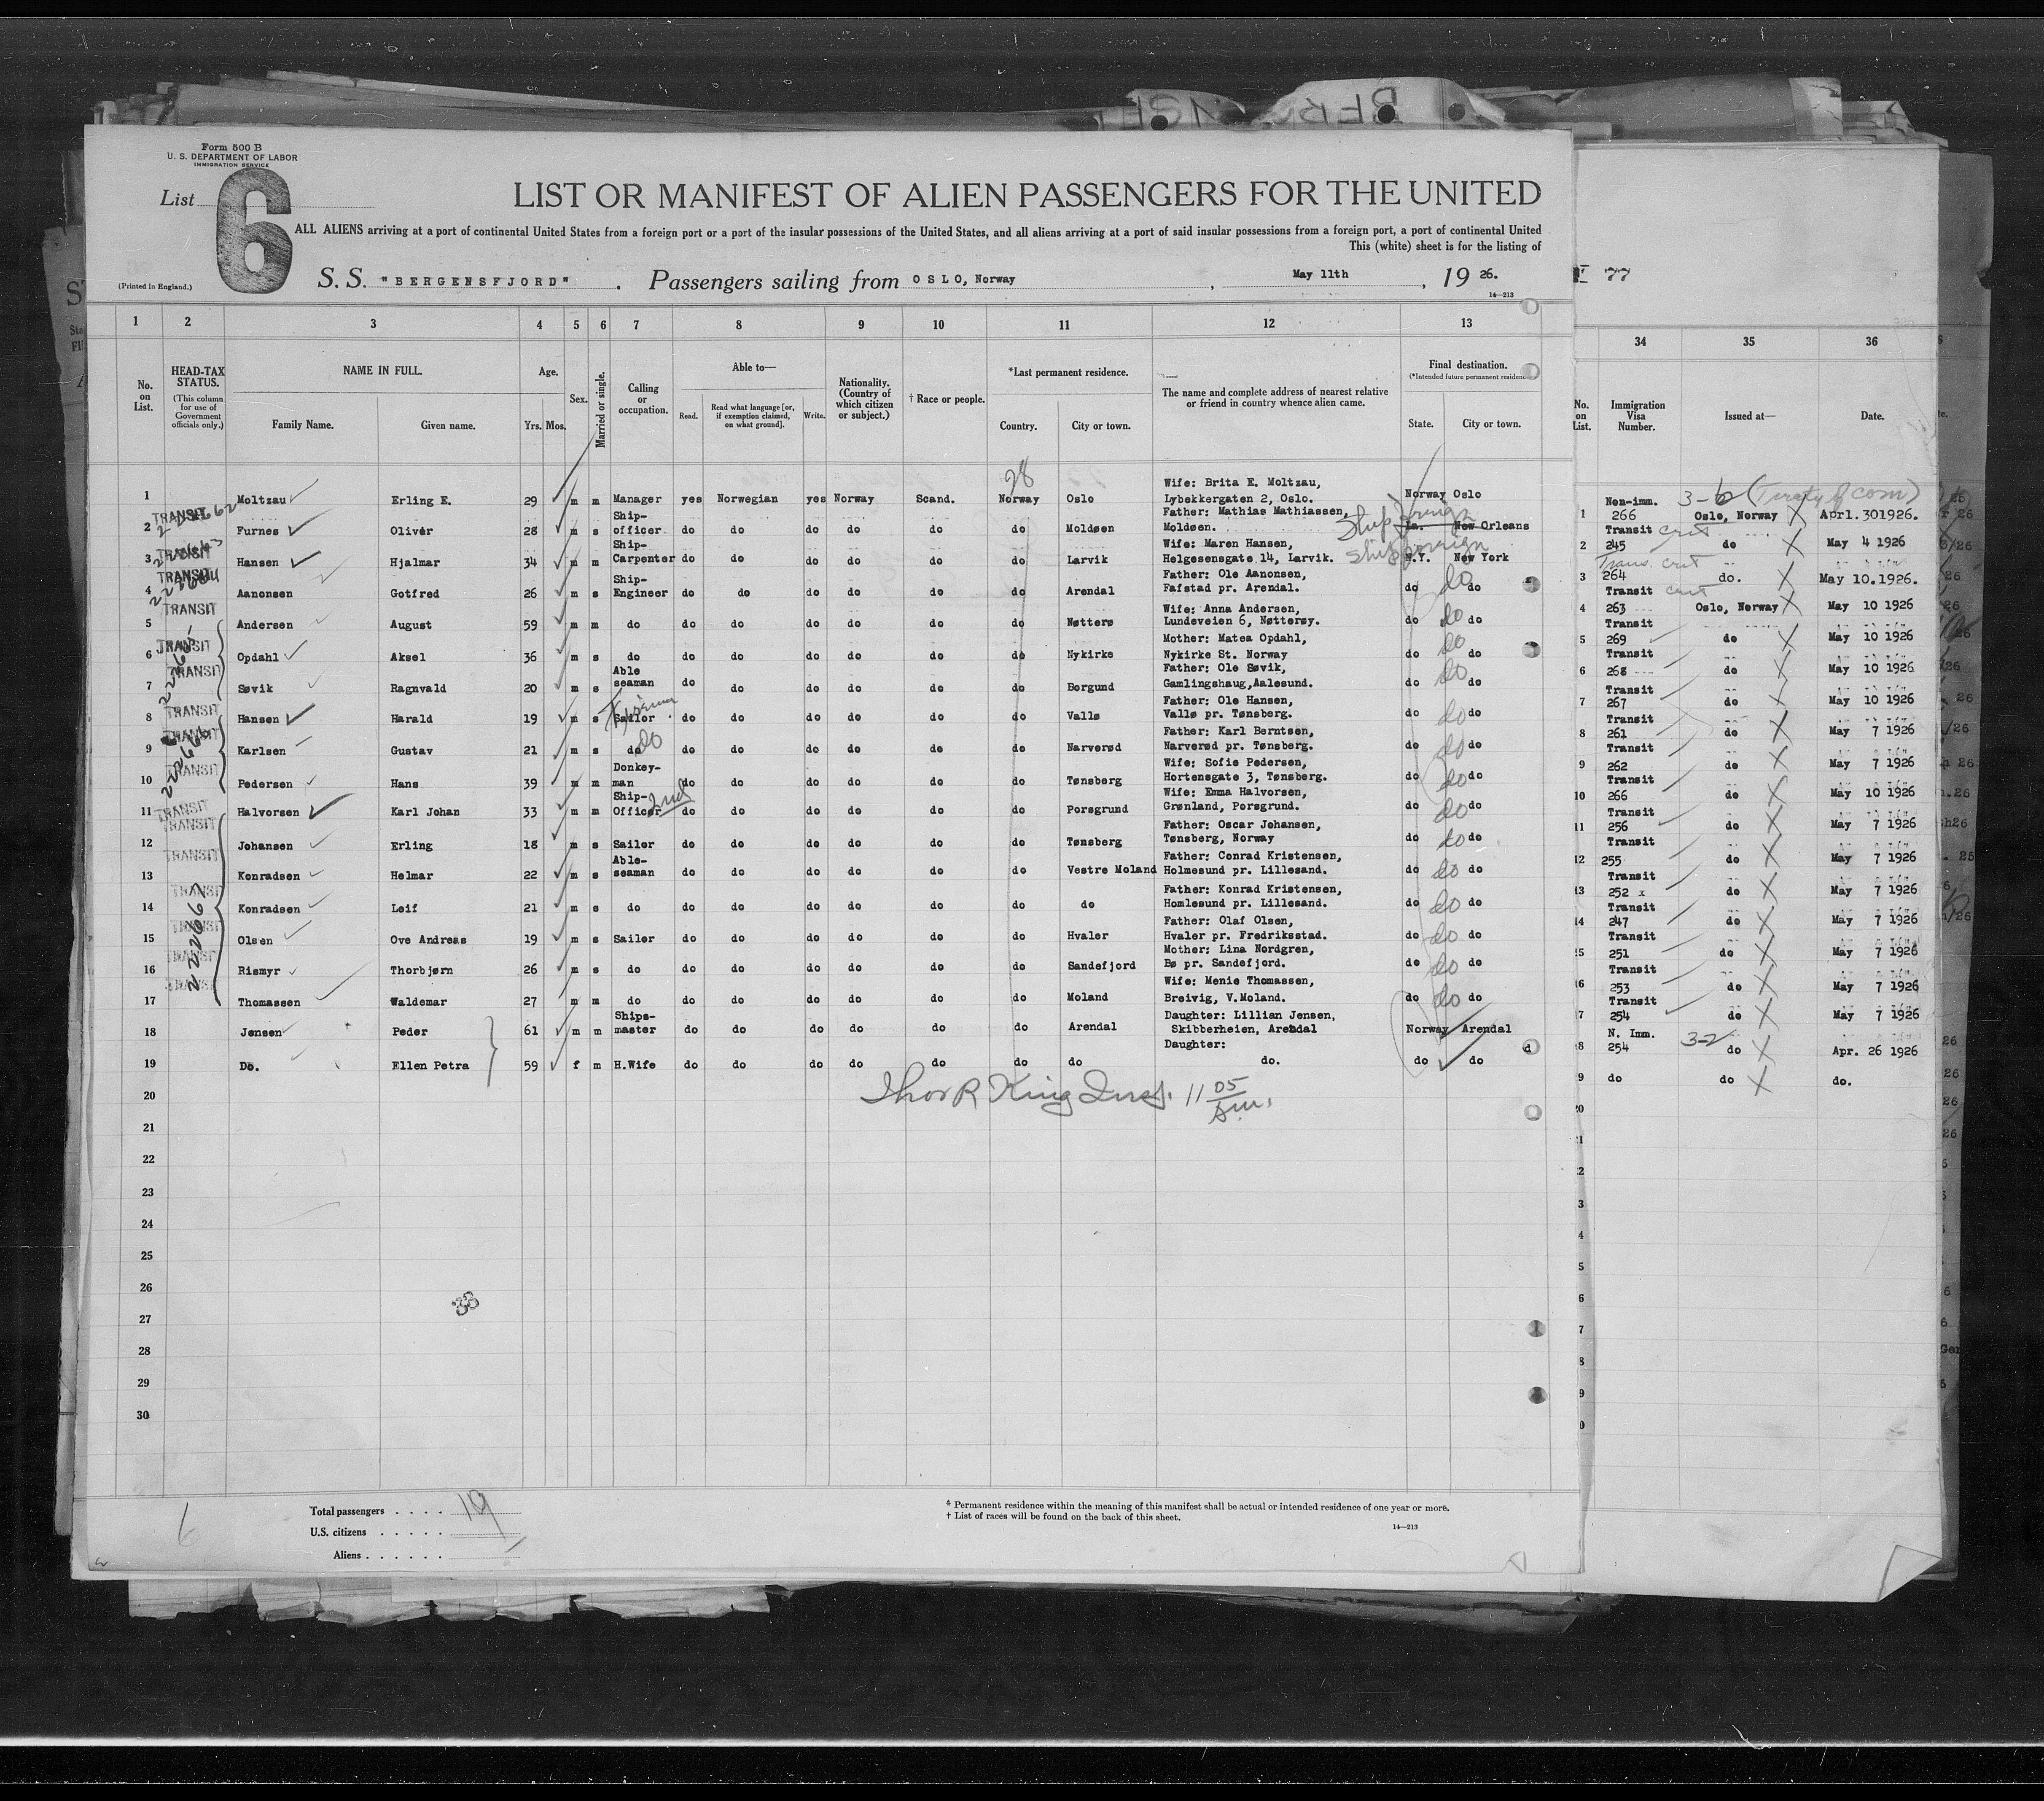 Form 500 B
U. S. DEPARTMENT OF LABOR
IMMIGRATION SERVICE
List 6
LIST OR MANIFEST OF ALIEN PASSENGERS FOR THE UNITED
ALL ALIENS arriving at a port of continental United States from a foreign port or a port of the insular possessions of the United States, and all aliens arriving at a port of said insular possessions from a foreign port, a port of continental United
This (white) sheet is for the listing of
(Printed in England.)
S. S. "BERGENSFJORD". Passengers sailing from OSLO, Norway, May 11th, 1926.
14—213
77
1 2 3 4 5 6 7 8 9 10 11 12 13 34 35 36
No. on List.
HEAD-TAX STATUS.
(This column for use of Government officials only.)
NAME IN FULL.
Family Name. Given name.
Age.
Yrs. Mos.
Sex.
Married or single.
Calling or occupation.
Able to—
Read. Read what language [or, if exemption claimed, on what ground]. Write.
Nationality. (Country of which citizen or subject.)
† Race or people.
*Last permanent residence.
Country. City or town.
The name and complete address of nearest relative or friend in country whence alien came.
Final destination.
(*Intended future permanent residence
State. City or town.
No. on List.
Immigration Visa Number.
Issued at—
Date.
28
1 Moltzau Erling E. 29 m m Manager yes Norwegian yes Norway Scand. Norway Oslo Wife: Brita E. Moltzau, Lybekkergaten 2, Oslo. Norway Oslo
2 TRANSIT Furnes Olivér 28 m s Ship-officer do do do do do do Moldøen Father: Mathias Mathiassen, Moldøen. La. New Orleans Ship foreign
3 TRANSIT Hansen Hjalmar 34 m m Ship-Carpenter do do do do do do Larvik Wife: Maren Hansen, Helgesensgate 14, Larvik. N.Y. New York Ship foreign
4 TRANSIT Aanonsen Gotfred 26 m s Ship-Engineer do do do do do do Arendal Father: Ole Aanonsen, Fafstad pr. Arendal. do do do
5 TRANSIT Andersen August 59 m m do do do do do do do Nøtterø Wife: Anna Andersen, Lundeveien 6, Nøtterøy. do do do
6 TRANSIT Opdahl Aksel 36 m s do do do do do do do Nykirke Mother: Matea Opdahl, Nykirke St. Norway do do do
7 TRANSIT Søvik Ragnvald 20 m s Able seaman do do do do do do Borgund Father: Ole Søvik, Gamlingshaug,Aalesund. do do do
8 TRANSIT Hansen Harald 19 m s Sailor do do do do do do Vallø Father: Ole Hansen, Vallø pr. Tønsberg. do do do
9 TRANSIT Karlsen Gustav 21 m s do do do do do do do do Narverød Father: Karl Berntsen, Narverød pr. Tønsberg. do do do
10 TRANSIT Pedersen Hans 39 m m Donkey-man do do do do do do Tønsberg Wife: Sofie Pedersen, Hortensgate 3, Tønsberg. do do do
11 TRANSIT Halvorsen Karl Johan 33 m m Ship-Officer 2nd do do do do do do Porsgrund Wife: Emma Halvorsen, Grønland, Porsgrund. do do do
12 TRANSIT Johansen Erling 18 m s Sailor do do do do do do Tønsberg Father: Oscar Johansen, Tønsberg, Norway do do do
13 TRANSIT Konradsen Helmar 22 m s Able-seaman do do do do do do Vestre Moland Father: Conrad Kristensen, Holmesund pr. Lillesand. do do do
14 TRANSIT Konradsen Leif 21 m s do do do do do do do do Father: Konrad Kristensen, Homlesund pr. Lillesand. do do do
15 TRANSIT Olsen Ove Andreas 19 m s Sailor do do do do do do Hvaler Father: Olaf Olsen, Hvaler pr. Fredriksstad. do do do
16 TRANSIT Rismyr Thorbjørn 26 m s do do do do do do do Sandefjord Mother: Lina Nordgren, Bø pr. Sandefjord. do do do
17 TRANSIT Thomassen Waldemar 27 m m do do do do do do do Moland Wife: Menie Thomassen, Breivig, V.Moland. do do do
18 Jensen Peder 61 m m Ships-master do do do do do do Arendal Daughter: Lillian Jensen, Skibberheien, Arendal Norway Arendal
19 Do. Ellen Petra 59 f m H.Wife do do do do do do do Daughter: do. do do
222667
20
21
22
23
24
25
26
27
28
29
30
Thos R King Insp. 11 05 am.
1 Non-imm. 266 3-6 (Treaty of com) Oslo, Norway Aprl.301926.
2 Transit cert 245 do May 4 1926
3 Trans. cert 264 do. May 10.1926.
4 Transit cert 263 Oslo, Norway May 10 1926
5 Transit 269 do May 10 1926
6 Transit 268 do May 10 1926
7 Transit 267 do May 10 1926
8 Transit 261 do May 7 1926
9 Transit 262 do May 7 1926
10 Transit 266 do May 10 1926
11 Transit 256 do May 7 1926
12 Transit 255 do May 7 1926
13 Transit 252 x do May 7 1926
14 Transit 247 do May 7 1926
15 Transit 251 do May 7 1926
16 Transit 253 do May 7 1926
17 Transit 254 do May 7 1926
18 N. Imm. 254 3-2 do Apr. 26 1926
19 do do do.
Total passengers 19
U.S. citizens
Aliens
6
* Permanent residence within the meaning of this manifest shall be actual or intended residence of one year or more.
† List of races will be found on the back of this sheet.
14—213